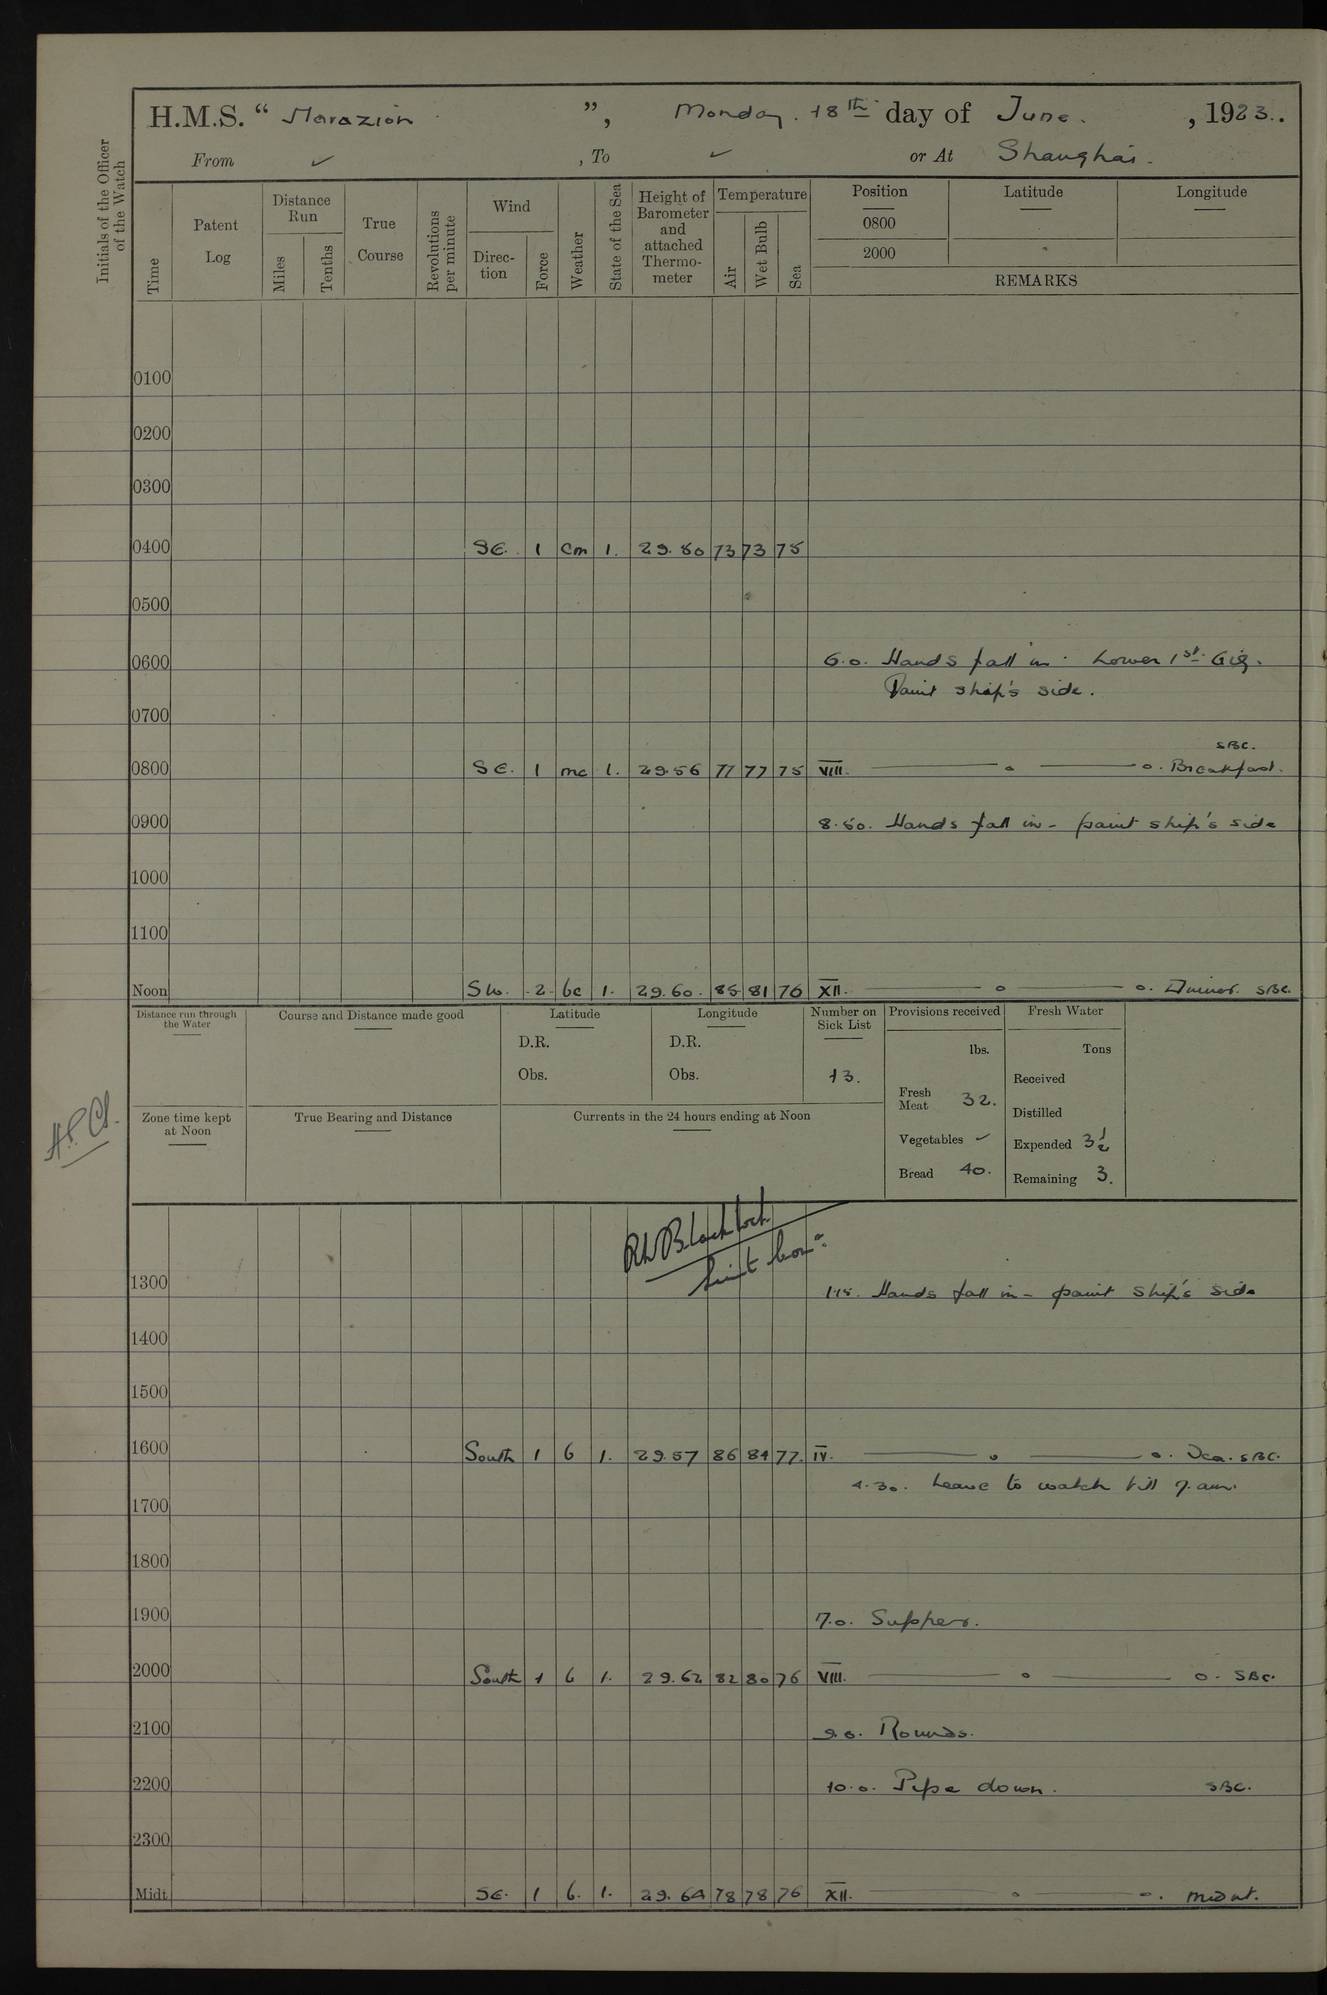 H.M.S. “ Marazion ”, Monday. 18th day of June. , 1923.
From ✓ , To ✓ or At Shanghai.
Initials of the Officer of the Watch
Time
Patent Log
Distance Run
Miles
Tenths
True Course
Revolutions per minute
Wind
Direc-tion
Force
Weather
State of the Sea
Height of Barometer and attached Thermo-meter
Temperature
Air
Wet Bulb
Sea
Position Latitude Longitude
0800
2000
REMARKS
0100
0200
0300
0400 SE. 1 cm 1. 29.50 73 73 75
0500
0600 6.0. Hands fall in. Lower 1st Gig.
Paint ship's side.
0700
SBC.
0800 SE. 1 mc 1. 29.56 77 77 75 VIII. o o. Breakfast.
0900 8.50. Hands fall in - paint ship's side
1000
1100
Noon SW. 2 bc 1. 29.60. 85 81 76 XII. o o. Dinner. SBC.
Distance run through the Water
Course and Distance made good
Latitude
D.R.
Obs.
Longitude
D.R.
Obs.
Number on Sick List
13.
Provisions received
lbs.
Fresh Meat 32.
Vegetables ✓
Bread 40.
Fresh Water
Tons
Received
Distilled
Expended 3½
Remaining 3.
Zone time kept at Noon
True Bearing and Distance
Currents in the 24 hours ending at Noon
Blacklock
1300 1.15. Hands fall in - paint ship's side
1400
1500
1600 South 1 b 1. 29.57 86 84 77. IV. o o. Tea. SBC.
4.30. Leave to watch till 7. am.
1700
1800
1900 7.0. Supper.
2000 South 1 b 1. 29.62 82 80 76 VIII. o o. SBC.
2100 9.0. Rounds.
2200 10.0. Pipe down. SBC.
2300
Midt. SE. 1 b. 1. 29.64 78 78 76 XII. o o. midnt.